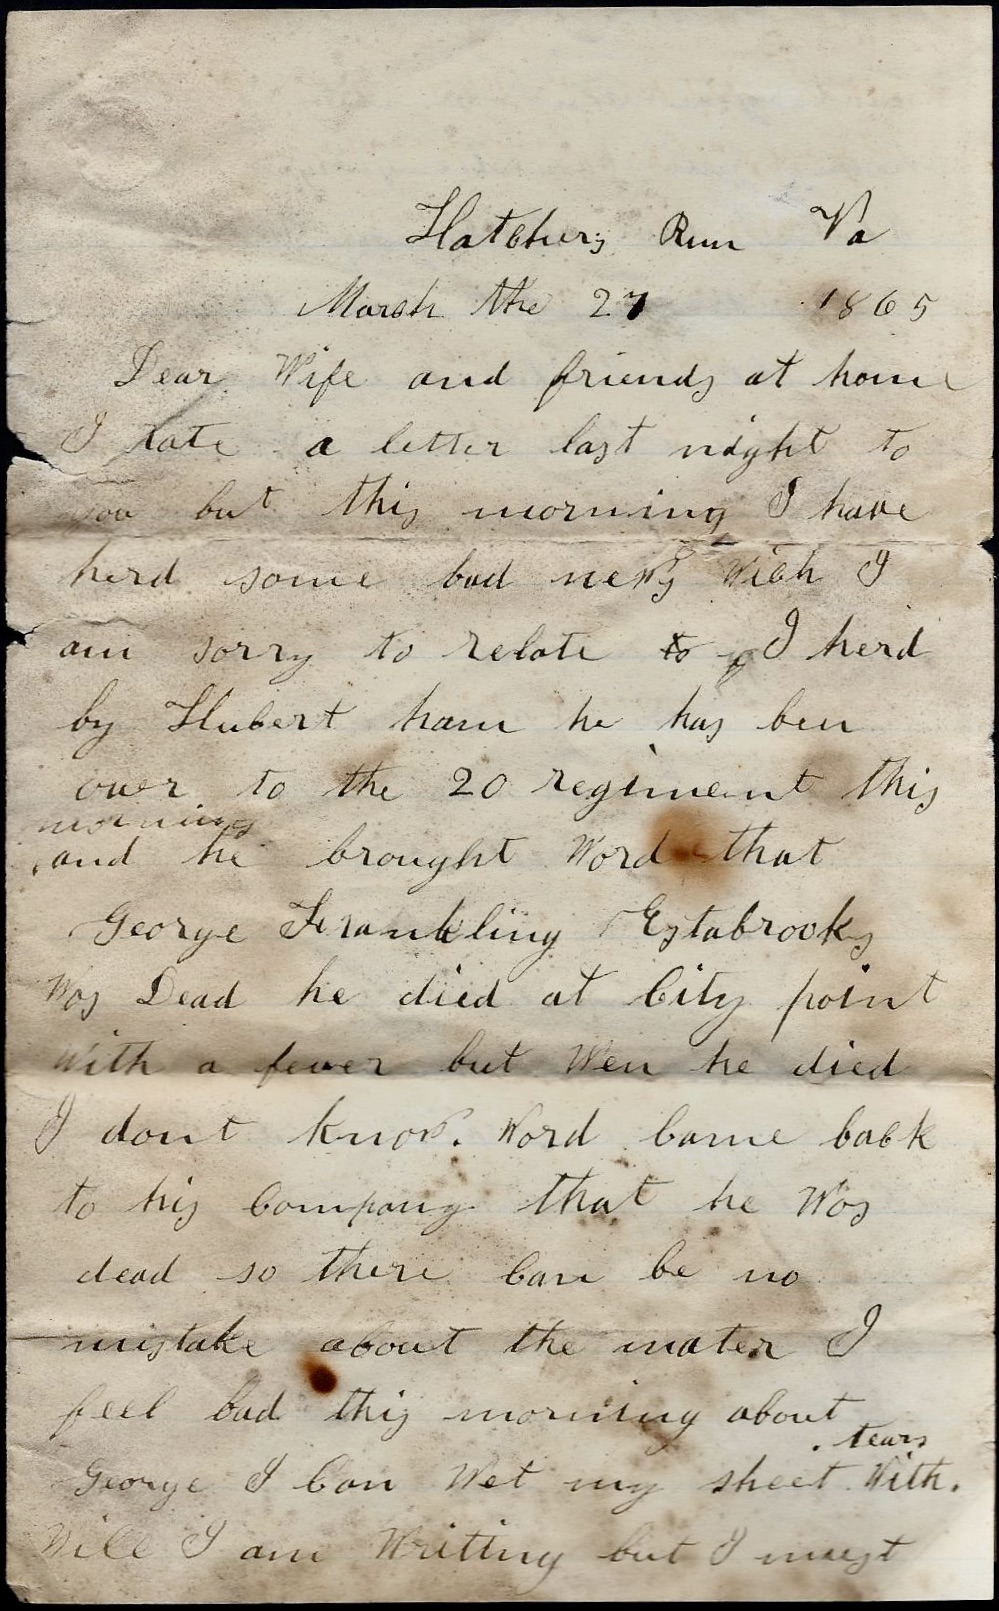 Hatchers Run Va
March the 27 1865
Dear Wife and friends at home
I rote a letter last night to
you but this morning I have
herd some bad news Wich I
am sorry to relate to I herd
by Hubert ham he has ben
over to the 20 regiment this
morning
and he brought Word that
George Frankling Estabrooks
Was Dead he died at City point
With a fever but Wen he died
I dont know. Word came back
to his company that he Was
dead so there can be no
mistake about the mater I
feel bad this morning about
tears
George I can Wet my sheet With.
Wile I am Writting but I must